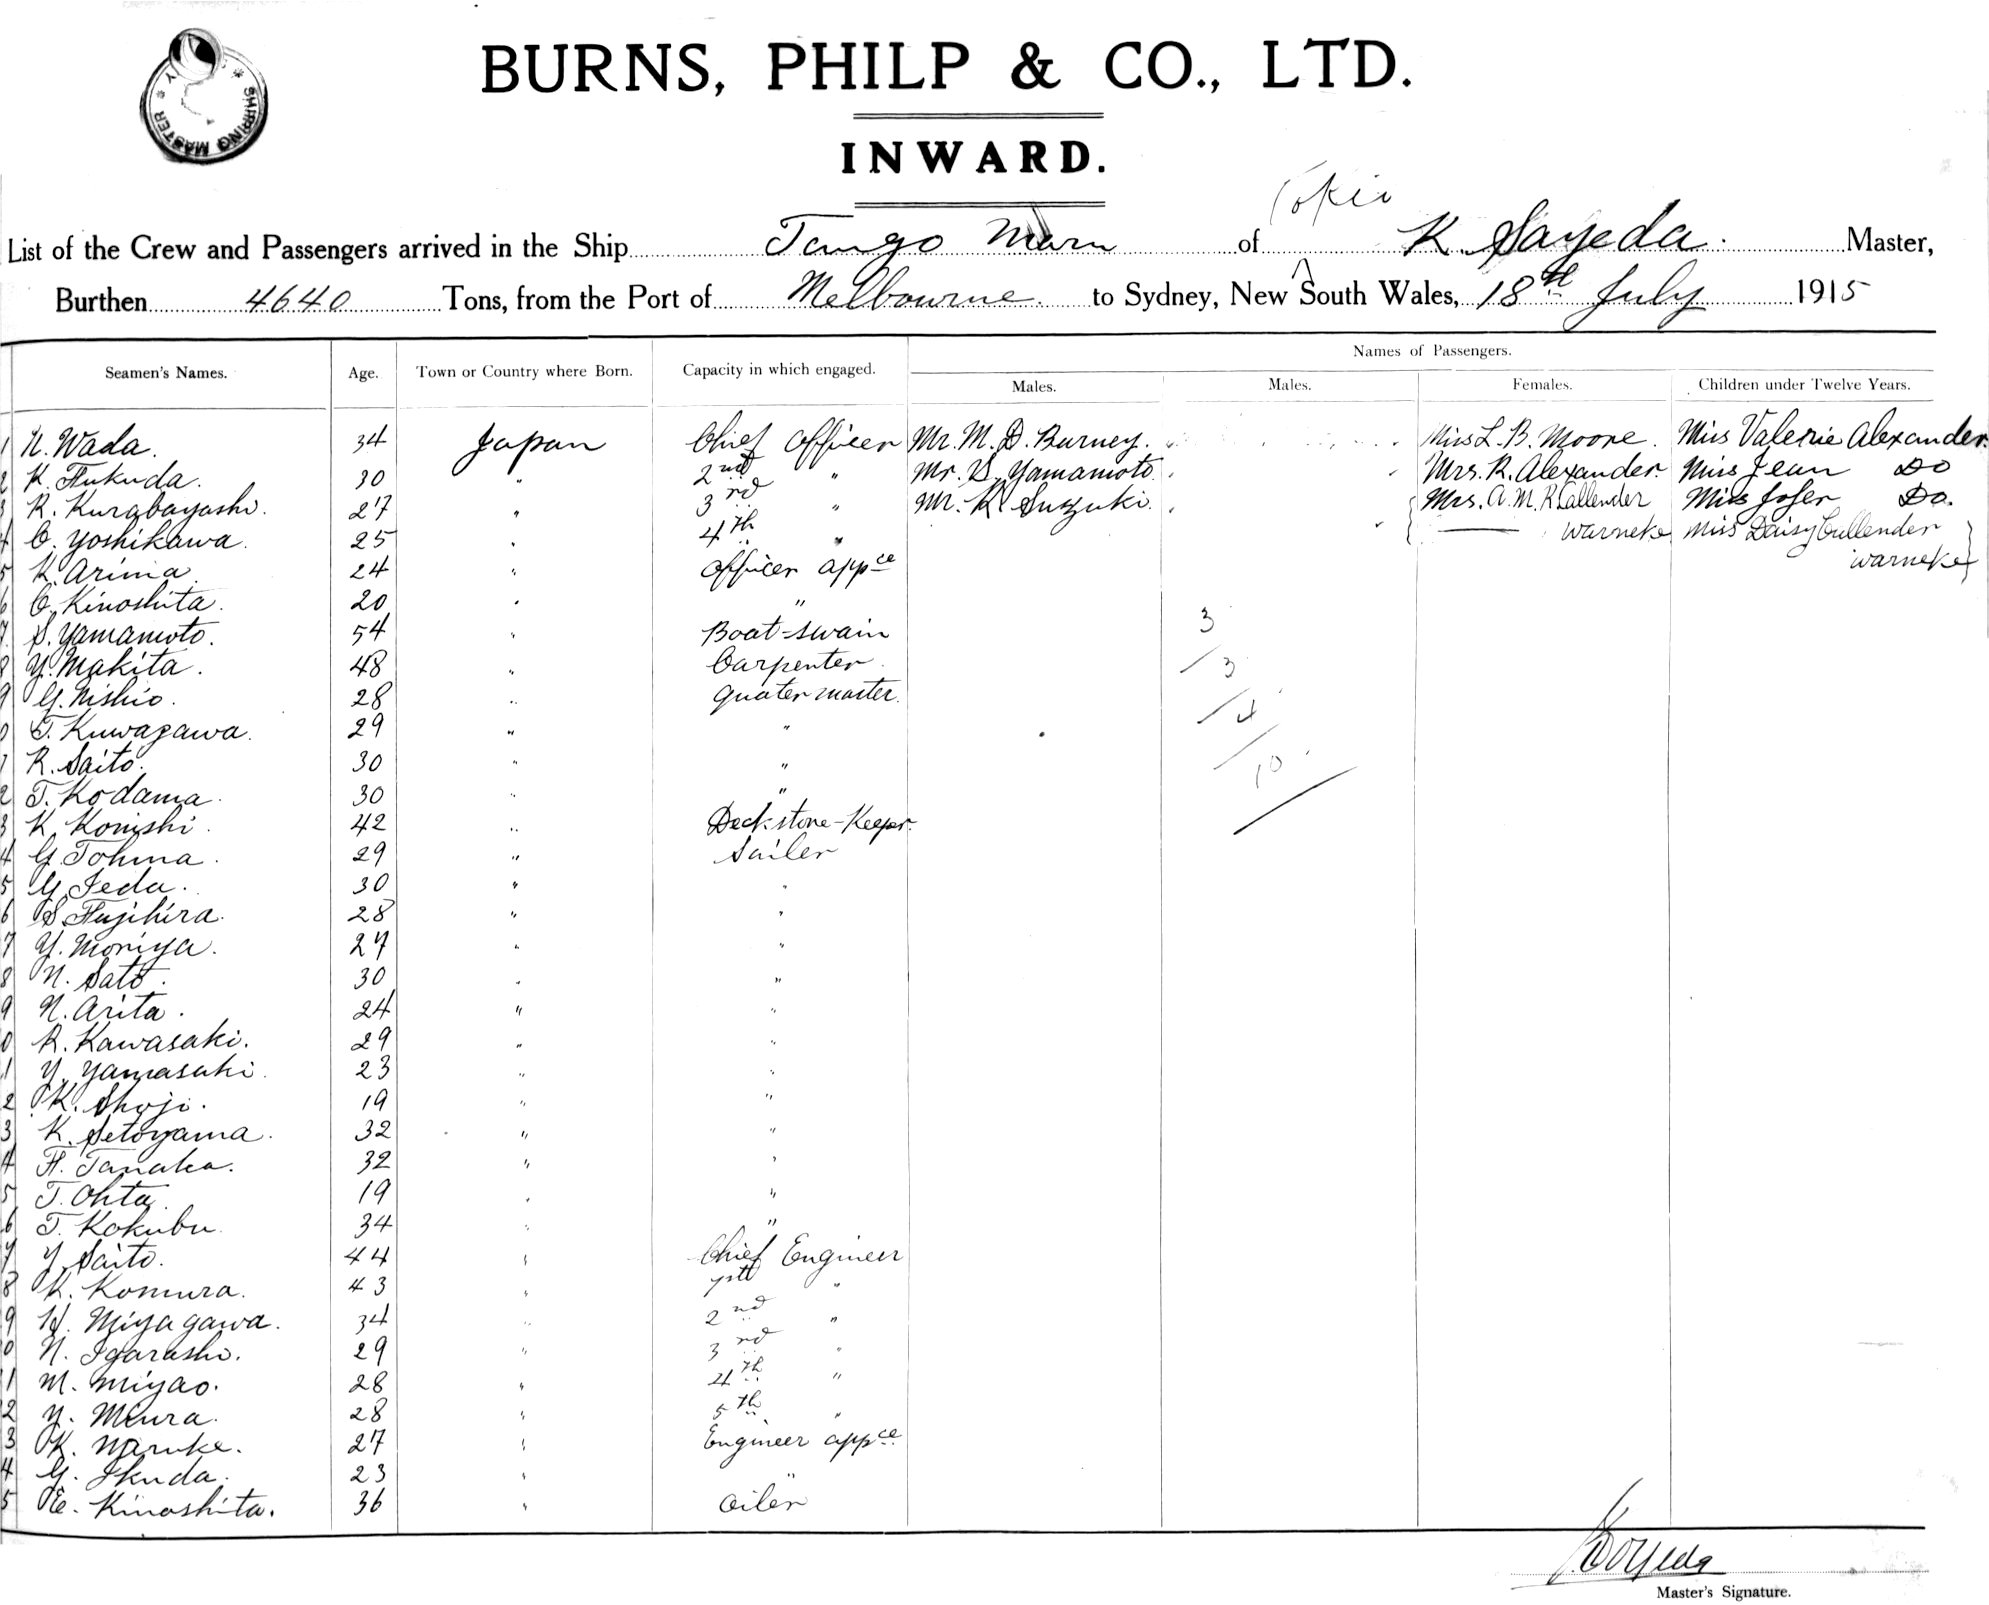 SHIPPING MASTER
BURNS, PHILP & CO., LTD.
INWARD.
Tokio
List of the Crew and Passengers arrived in the Ship Tango Maru of K. Soyeda. Master,
Burthen 4640 Tons, from the Port of Melbourne. to Sydney, New South Wales, 18th July 1915
Names of Passengers.
Seamen's Names. Age. Town or Country where Born. Capacity in which engaged. Males. Males. Females. Children under Twelve Years.
1 N. Wada. 34 Japan Chief Officer Mr. M. D. Burney. Miss L. B. Moore. Miss Valerie Alexander.
2 K. Fukuda. 30 " 2nd " Mr. S. Yamamoto. Mrs. R. Alexander. Miss Jean Do
3 R. Kurabayashi. 27 " 3rd " Mr. K. Suzuki. Mrs. A. M. R. Callender Miss Do.
4 C. Yoshikawa. 25 " 4th " Warneke Miss Daisy Cullender
5 K. Arima. 24 " Officer appce Warneke
6 C. Kinoshita. 20 " "
7. S. Yamamoto. 54 " Boat-swain 3
8 Y. Makita. 48 " Carpenter. 3
9 G. Nishio. 28 " Quater master. 4
0 T. Kuwagawa. 29 " "
1 R. Saito. 30 " " 10
2 T. Kodama. 30 " "
3 K. Konishi. 42 " Deckstone-Keeper.
4 G. Tohma. 29 " Sailer
5 Y. Ieda. 30 " "
6 S. Fujihira. 28 " "
7 Y. Moriya. 27 " "
8 N. Sato. 30 " "
9 N. Arita. 24 " "
0 R. Kawasaki. 29 " "
1 Y. Yamasaki. 23 " "
2 K. Shoji. 19 " "
3 K. Setoyama. 32 " "
4 F. Tanaka. 32 " "
5 T. Ohta. 19 " "
6 T. Kokubu. 34 " "
7 Y. Saito. 44 " Chief Engineer
8 K. Komura. 43 " "
9 H. Miyagawa. 34 " 2nd "
0 N. Igarashi. 29 " 3rd "
1 M. Miyao. 28 " 4th "
2 Y. Miura. 28 " 5th "
3 K. Naruke. 27 " Engineer appce
4 G. Ikuda. 23 " "
5 E. Kinoshita. 36 " Oiler
K. Soyeda
Master's Signature.